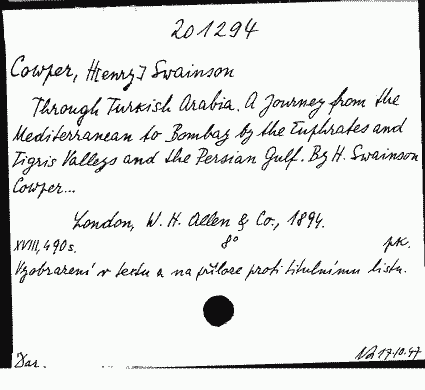 201294
Cowper, H[enry] Swainson
Through Turkish Arabia. A Journey from the
Mediterranean to Bombay by the Euphrates and
Tigris Valleys and the Persian Gulf. By H. Swainson
Cowper...
London, W. H. Allen & Co., 1894.
XVIII, 490 s. 8° pk.
Vyobrazení v textu a na příloze proti titulnímu listu.
Dar. 17.10.47